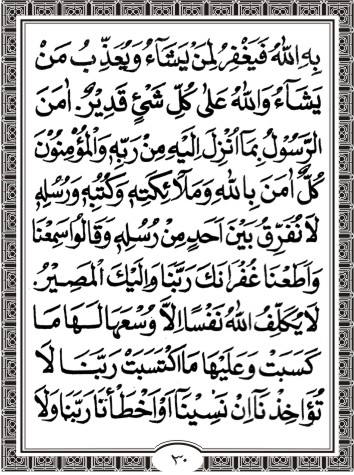 بِهِ اللّٰهُ فَيَغْفِرُ لِمَنْ يَشَآءُ وَيُعَذِّبُ مَنْ
يَشَآءُ وَاللّٰهُ عَلٰى كُلِّ شَئٍْ قَدِيْرٌ. اٰمَنَ
الرَّسُوْلُ بِمَآ اُنْزِلَ اِلَيْهِ مِنْ رَبِّهٖ وَالْمُؤْمِنُوْنَ
كُلٌّ اٰمَنَ بِاللّٰهِ وَمَلَآئِكَتِهٖ وَكُتُبِهٖ وَرُسُلِهٖ
لَا نُفَرِّقُ بَيْنَ اَحَدٍ مِنْ رُسُلِهٖ وَقَالُوا سَمِعْنَا
وَاَطَعْنَا غُفْرَانَكَ رَبَّنَا وَاِلَيْكَ الْمَصِيْرُ.
لَا يُكَلِّفُ اللّٰهُ نَفْسًا اِلَّا وُسْعَهَا لَهَا مَا
كَسَبَتْ وَعَلَيْهَا مَا اكْتَسَبَتْ رَبَّنَا لَا
تُؤَاخِذْنَآ اِنْ نَسِيْنَآ اَوْ اَخْطَأْنَا رَبَّنَا وَلَا
٣٠